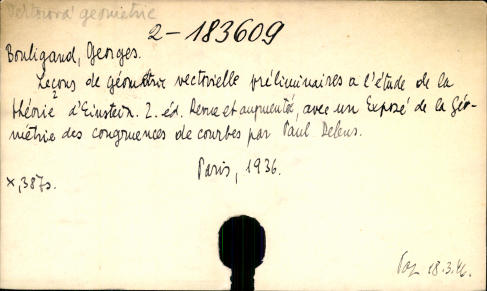 geometrie
2-183609
Bouligand, Georges.
Leçons de géométrie vectorielle préliminaires a l'étude de la
théorie d'Einstein. 2. éd. Revue et augmentée, avec un Exposé de la géo-
métrie des congruences de courbes par Paul Delens.
Paris, 1936.
X,387s.
18.3.46.